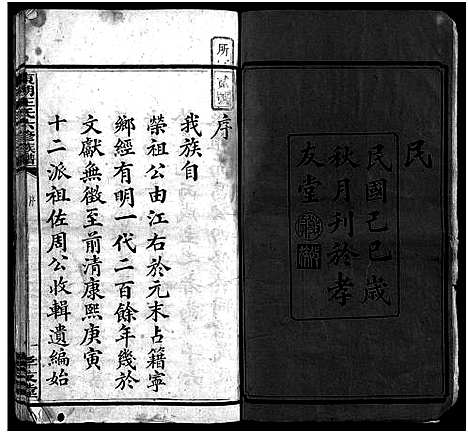 民
民國己巳歲
秋月刊於孝
友堂
序
我族自
榮祖公由江右於元末占籍寧
鄉經有明一代二百餘年幾於
文獻無徵至前清康熙庚寅
十二派祖佐周公收輯遺編始
序
孝友堂